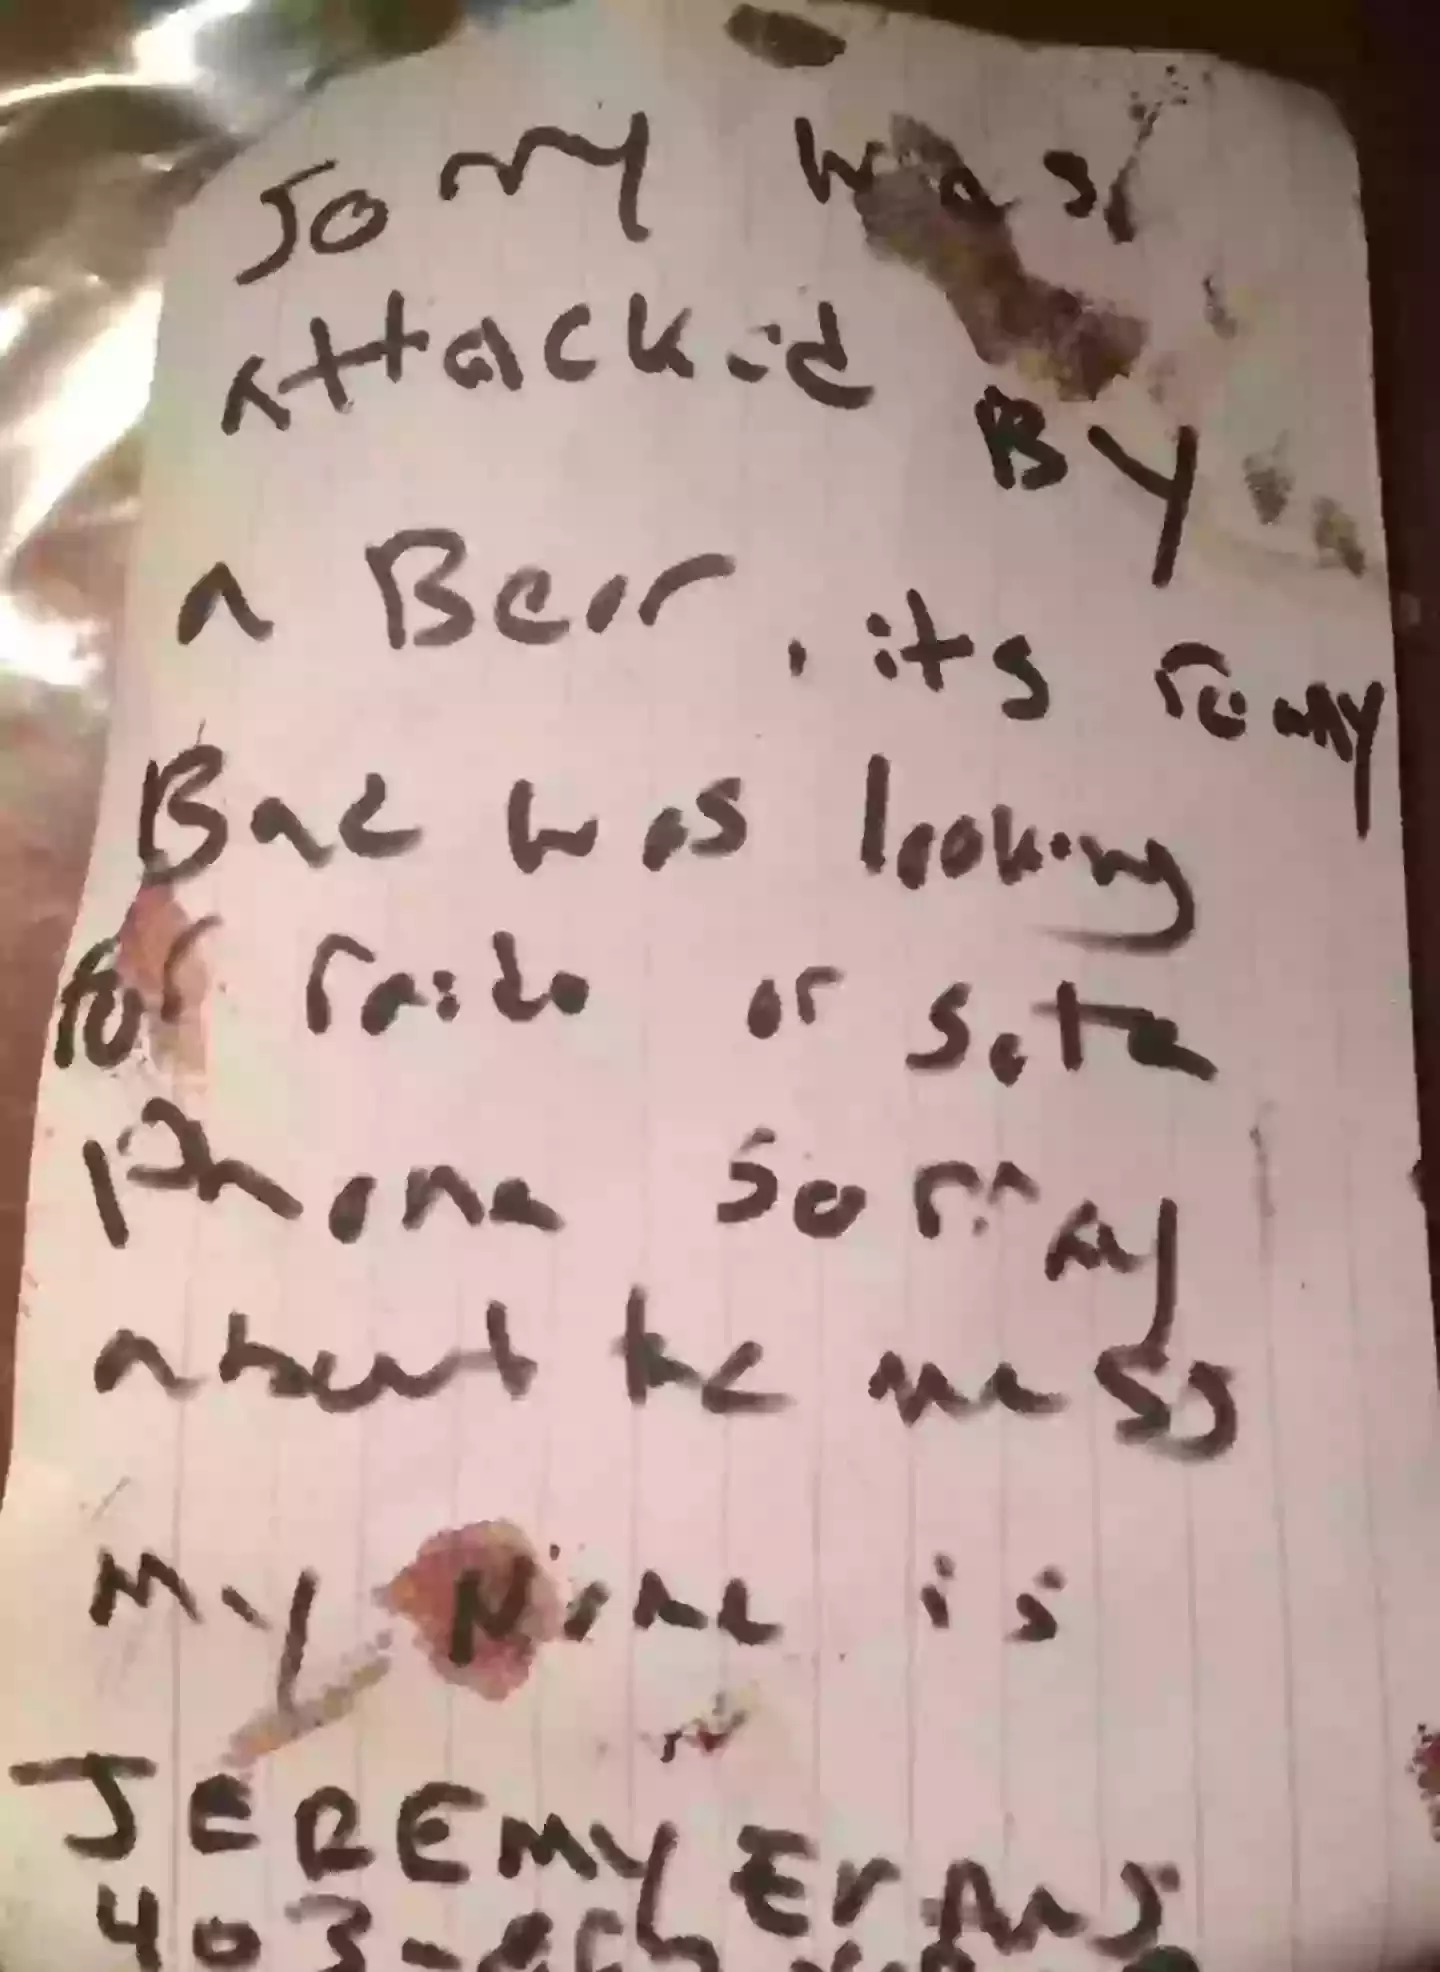 Sorry was
attacked By
a Bear, its really
Bad was looking
for raido or sata
Phone sorry
about the mess
My Name is
JEREMY EVANS
403-